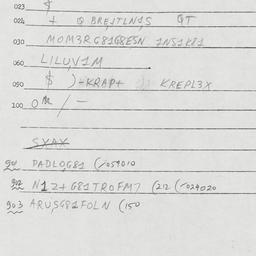 023 $
024 + Q BREJTLN1S QT
030 MOM3RG81G8ESN 1NS1K81
060 LILUV1M
090 $ ) KRAP+ KREPL3X
100 0 /-
SXAX
901 PADLOG81 (/059010
902 N1Z+G81TROFM7 (212 (/024020
903 ARUSG81FOLN (150